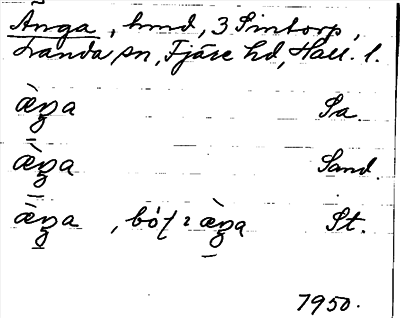 Änga, hmd, 3 Simtorp,
Landa sn, Fjäre hd, Hall. l.
æ̀ŋa Sa.
æ̀ŋa Sand.
æ̀ŋa, æ̀ŋa St.
1950.